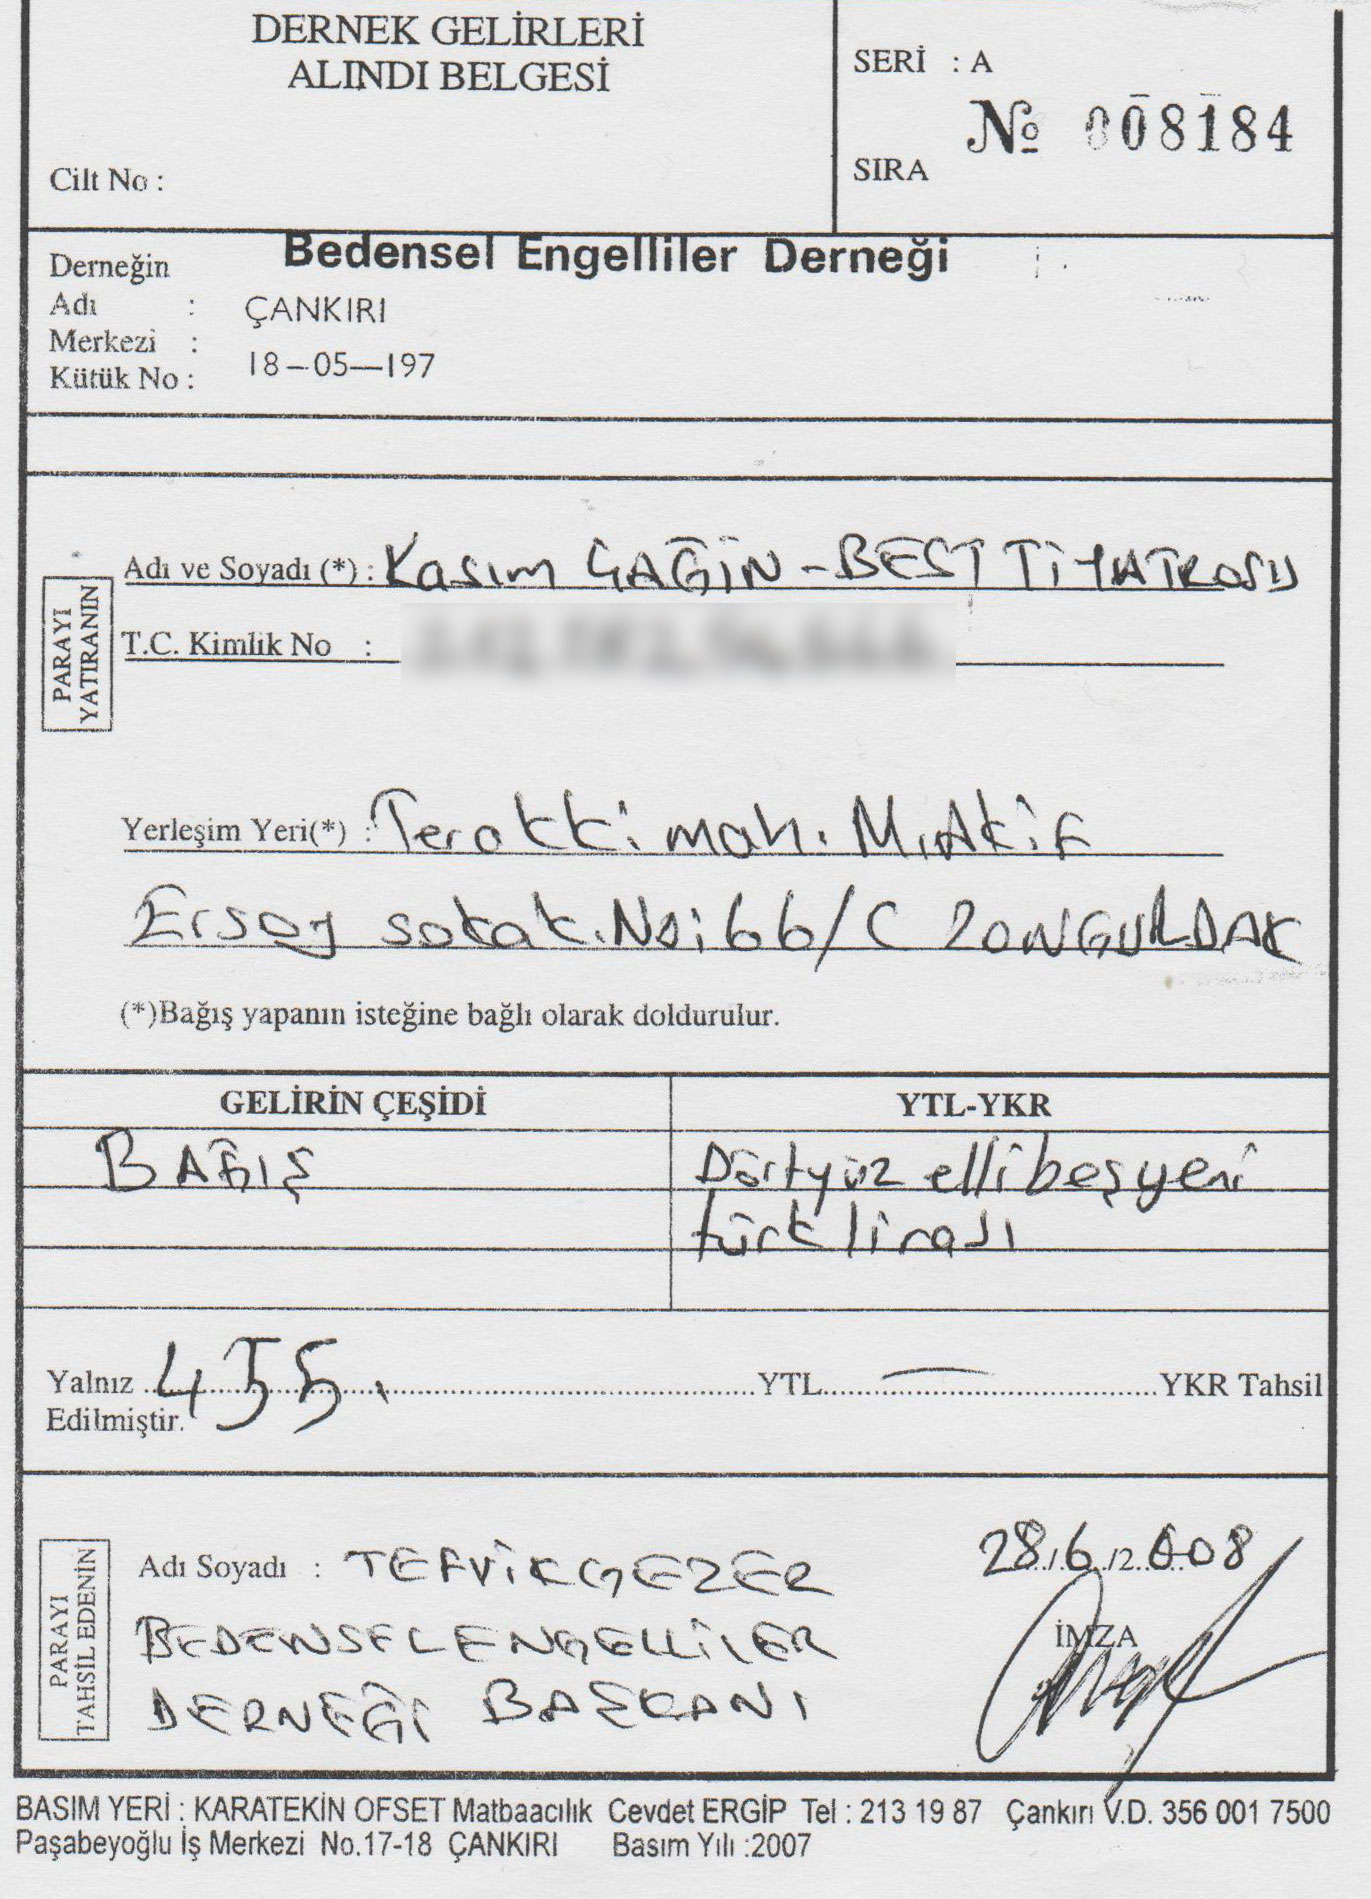 DERNEK GELİRLERİ
ALINDI BELGESİ
Cilt No :
SERİ : A
SIRA № 008184
Derneğin Bedensel Engelliler Derneği
Adı : ÇANKIRI
Merkezi :
Kütük No : 18-05-197
PARAYI
YATIRANIN
Adı ve Soyadı (*) : Kasım ÇAĞİN - BEST TİYATROSU
T.C. Kimlik No :
Yerleşim Yeri(*) : Terakki mah. M.Akif
Ersoy sokak. No: 66/C ZONGULDAK
(*)Bağış yapanın isteğine bağlı olarak doldurulur.
GELİRİN ÇEŞİDİ YTL-YKR
BAĞIŞ Dörtyüz ellibeş yeni
türk lirası
Yalnız 455. YTL — YKR Tahsil
Edilmiştir.
PARAYI
TAHSİL EDENİN
Adı Soyadı : TEFVİK GEZER 28/6/2008
BEDENSEL ENGELLİLER İMZA
DERNEĞİ BAŞKANI
BASIM YERİ : KARATEKİN OFSET Matbaacılık Cevdet ERGİP Tel : 213 19 87 Çankırı V.D. 356 001 7500
Paşabeyoğlu İş Merkezi No.17-18 ÇANKIRI Basım Yılı :2007